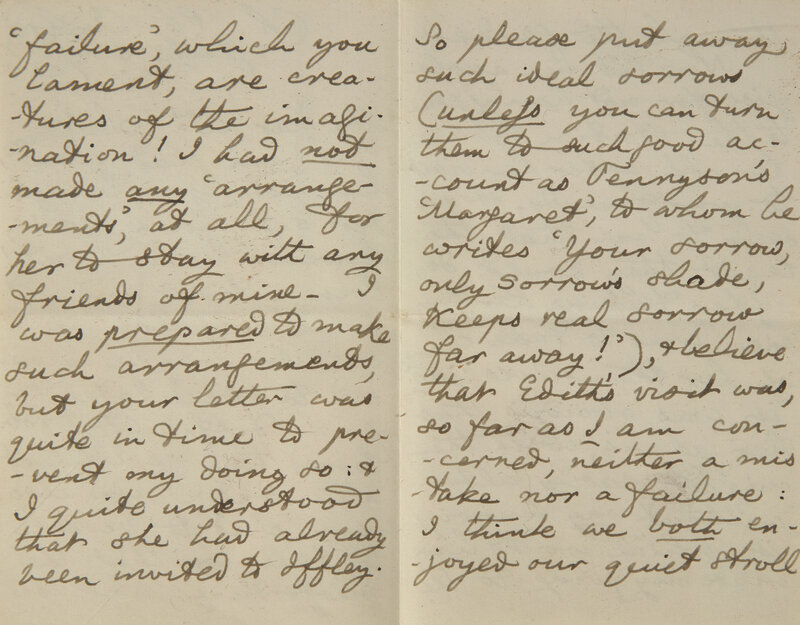 'failure', which you
lament, are crea-
-tures of the imagi-
-nation! I had not
made any 'arrange-
-ments', at all, for
her to stay with any
friends of mine— I
was prepared to make
such arrangements,
but your letter was
quite in time to pre-
-vent my doing so: &
I quite understood
that she had already
been invited to Iffley.
So please put away
such ideal sorrows
(unless you can turn
them to such good ac-
-count as Tennyson's
'Margaret', to whom he
writes 'Your sorrow,
only sorrow's shade,
Keeps real sorrow
far away!'), & believe
that Edith's visit was,
so far as I am con-
-cerned, neither a mis
-take nor a failure:
I think we both en-
-joyed our quiet stroll